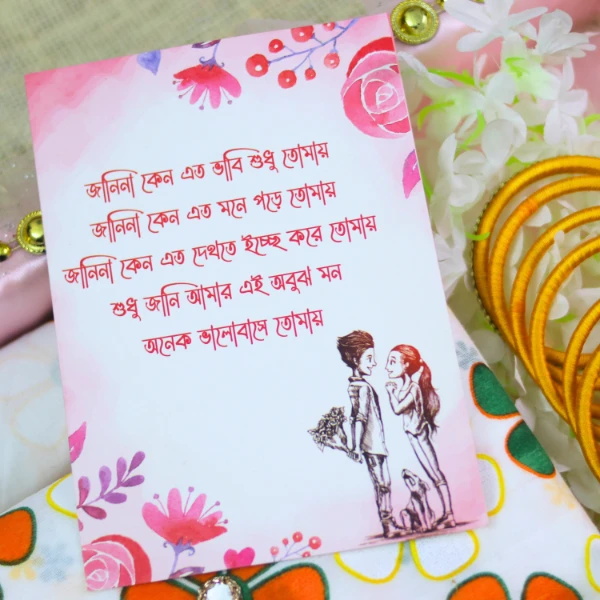 জানিনা কেন এত ভাবি শুধু তোমায়
জানিনা কেন এত মনে পড়ে তোমায়
জানিনা কেন এত দেখতে ইচ্ছে করে তোমায়
শুধু জানি আমার এই অবুঝ মন
অনেক ভালোবাসে তোমায়